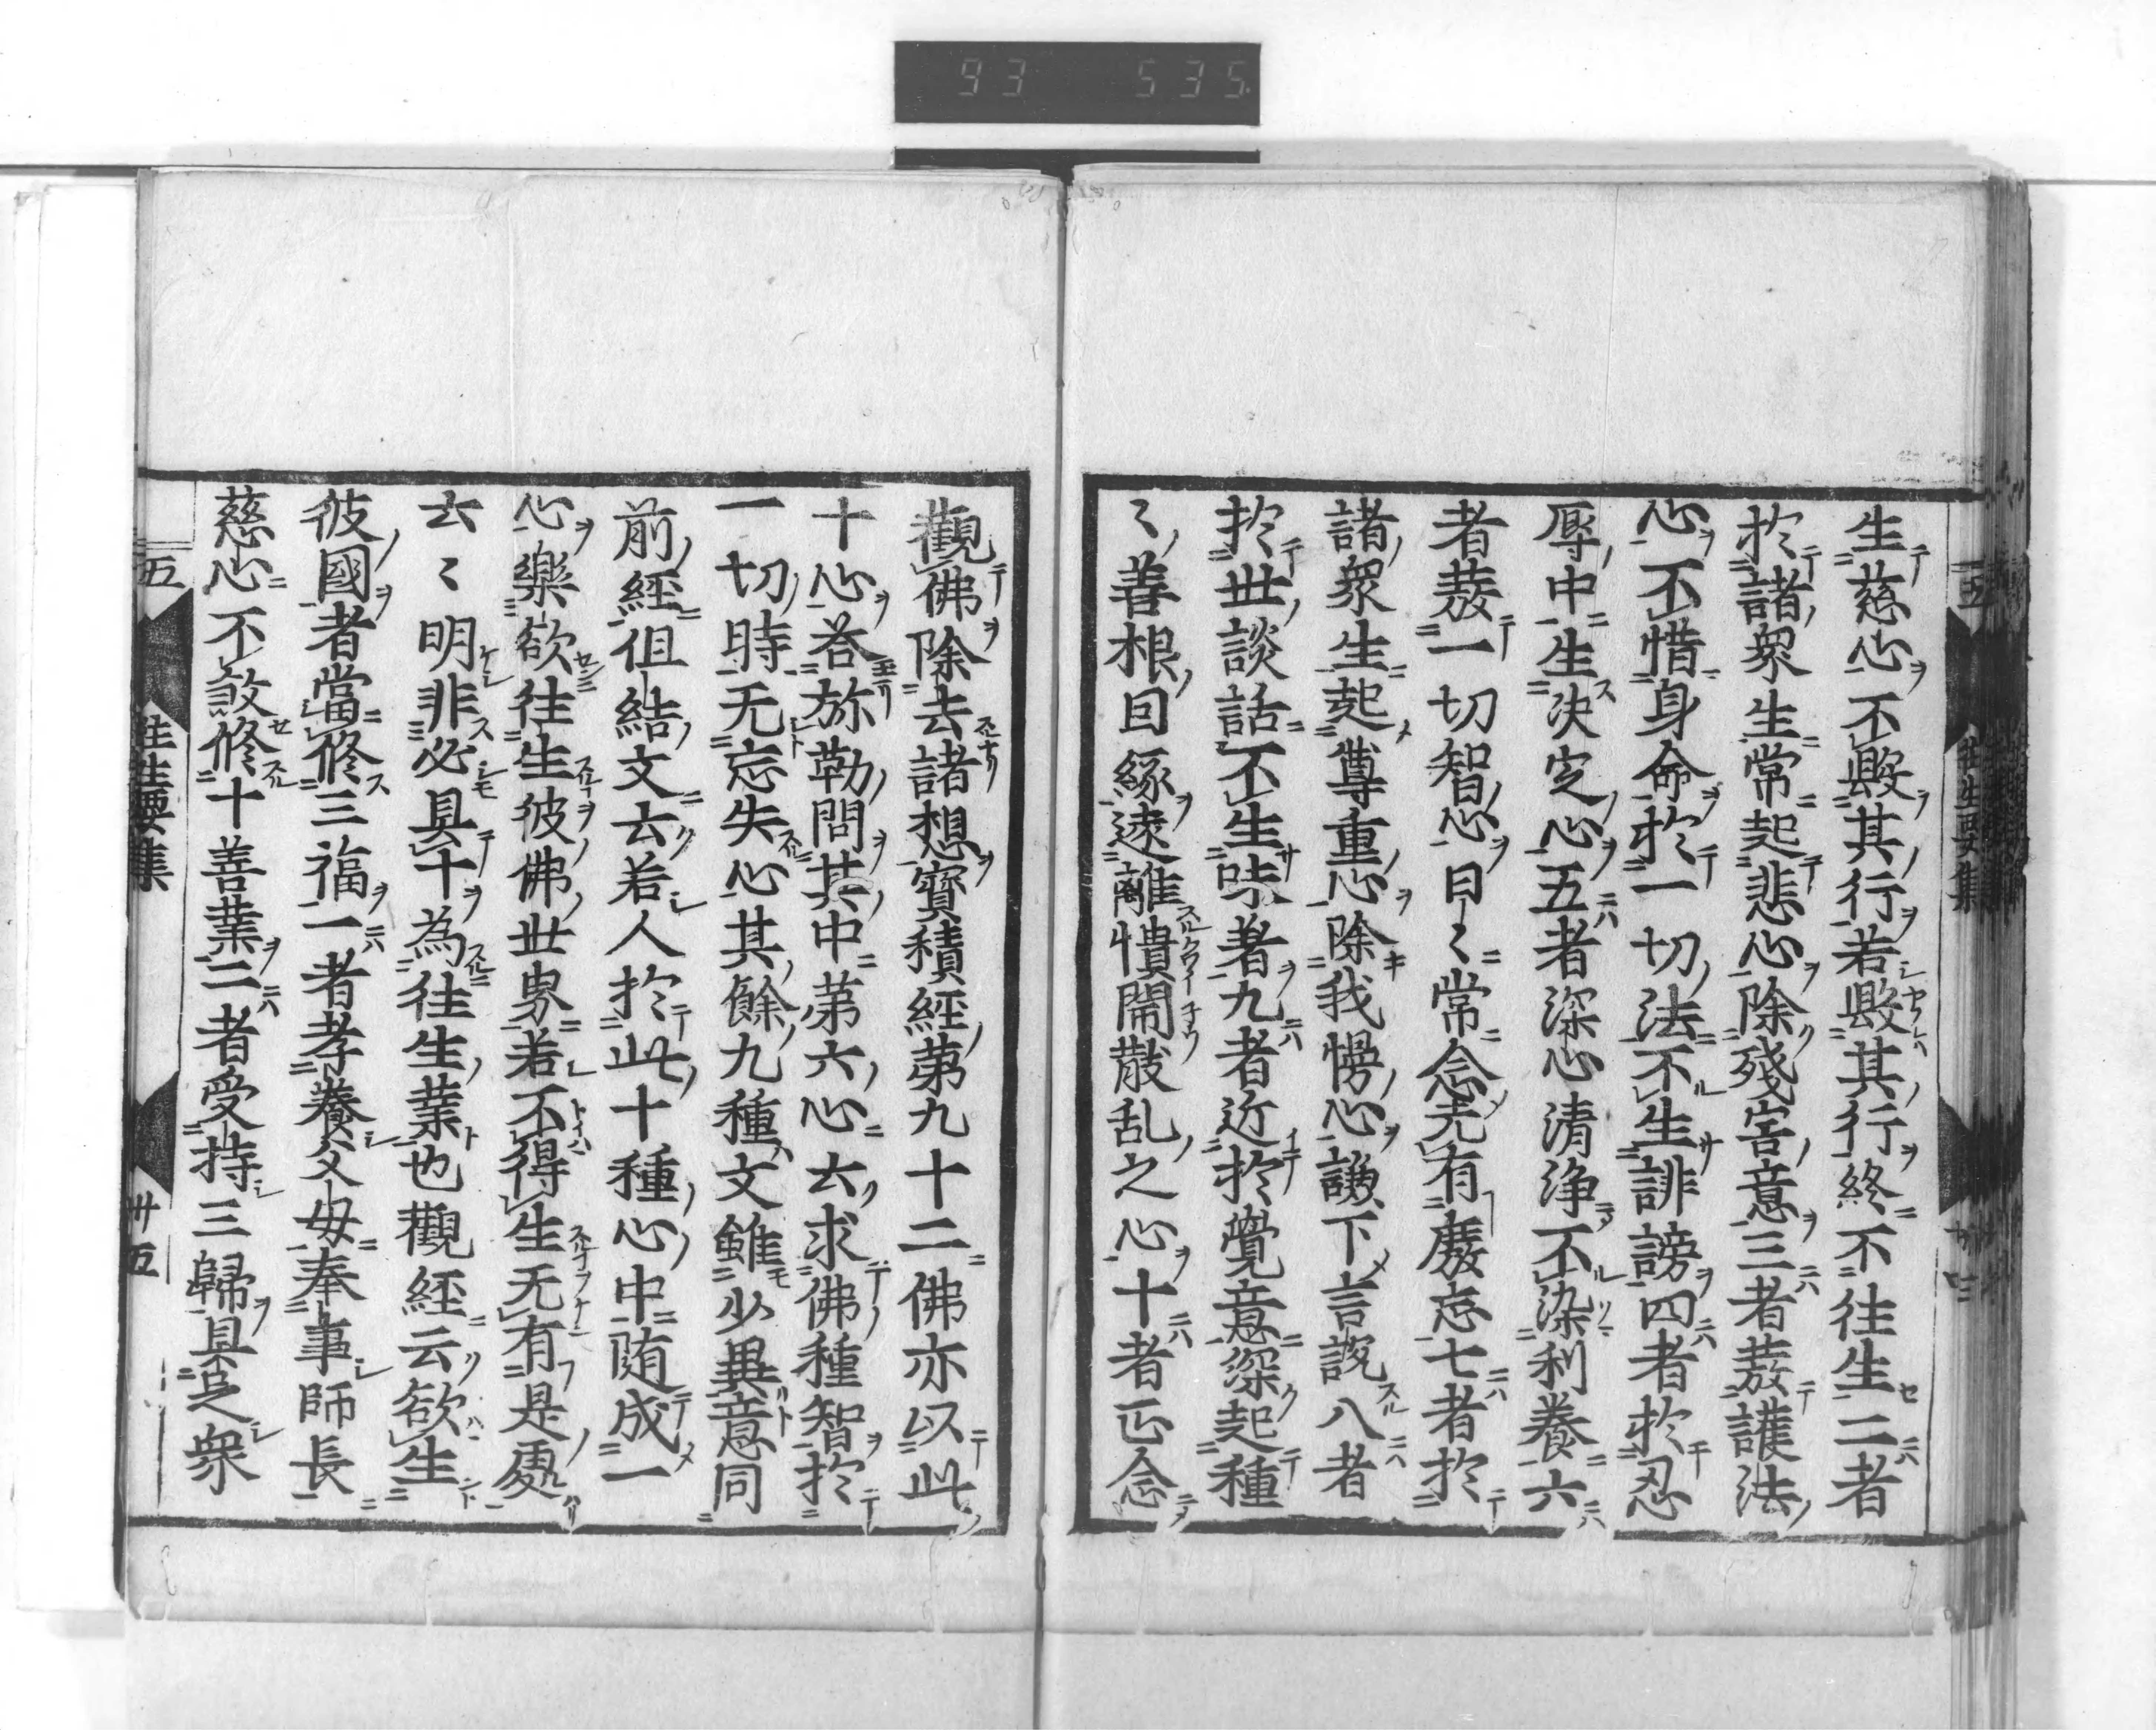 93 535
生慈心不毀其行若毀其行終不往生二者
於諸衆生常起悲心除殘害意三者發護法
心不惜身命於一切法不生誹謗四者於忍
辱中生決定心五者深心清浄不染利養六
者發一切智心日〻常念无有廢忘七者於
諸衆生起尊重心除我慢心謙下言說八者
於世談話不生味著九者近於覺意深起種
〻善根因緣遠離憒閙散乱之心十者正念
觀佛除去諸想寶積經第九十二佛亦以此
十心答弥勒問其中第六心云求佛種智於
一切時无忘失心其餘九種文雖少異意同
前經但結文云若人於此十種心中随成一
心樂欲往生彼佛世界若不得生无有是處
云〻明非必具十為往生業也觀經云欲生
彼國者當修三福一者孝養父母奉事師長
慈心不煞修十善業二者受持三歸具足衆
五 往生要集 卅五